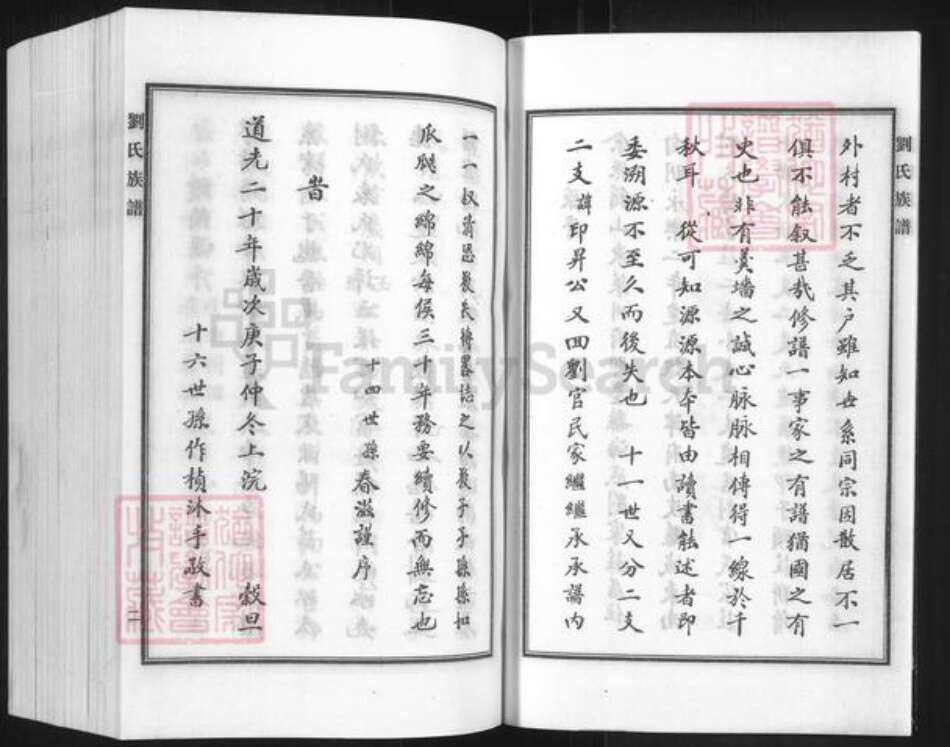 劉氏族譜
外村者不乏其户雖如世系同宗因散居不一
俱不能叙甚哉修譜一事家之有譜猶國之有
史也非有羹墻之誠心脉脉相傳得一線於千
秋耳從可知源源本本皆由讀書能述者即
委溯源不至久而後失也 十一世又分二支
二支諱印昇公又四劉官民家繼繼承承譜内
一一叔
之以
子子孫孫如
瓜瓞之綿綿每候三十年務要續修而無忘也
十四世孫春滋謹序
旹
道光二十年歲次庚子仲冬上浣 穀旦
十六世孫作楨沐手敬書
劉氏族譜
二
FamilySearch